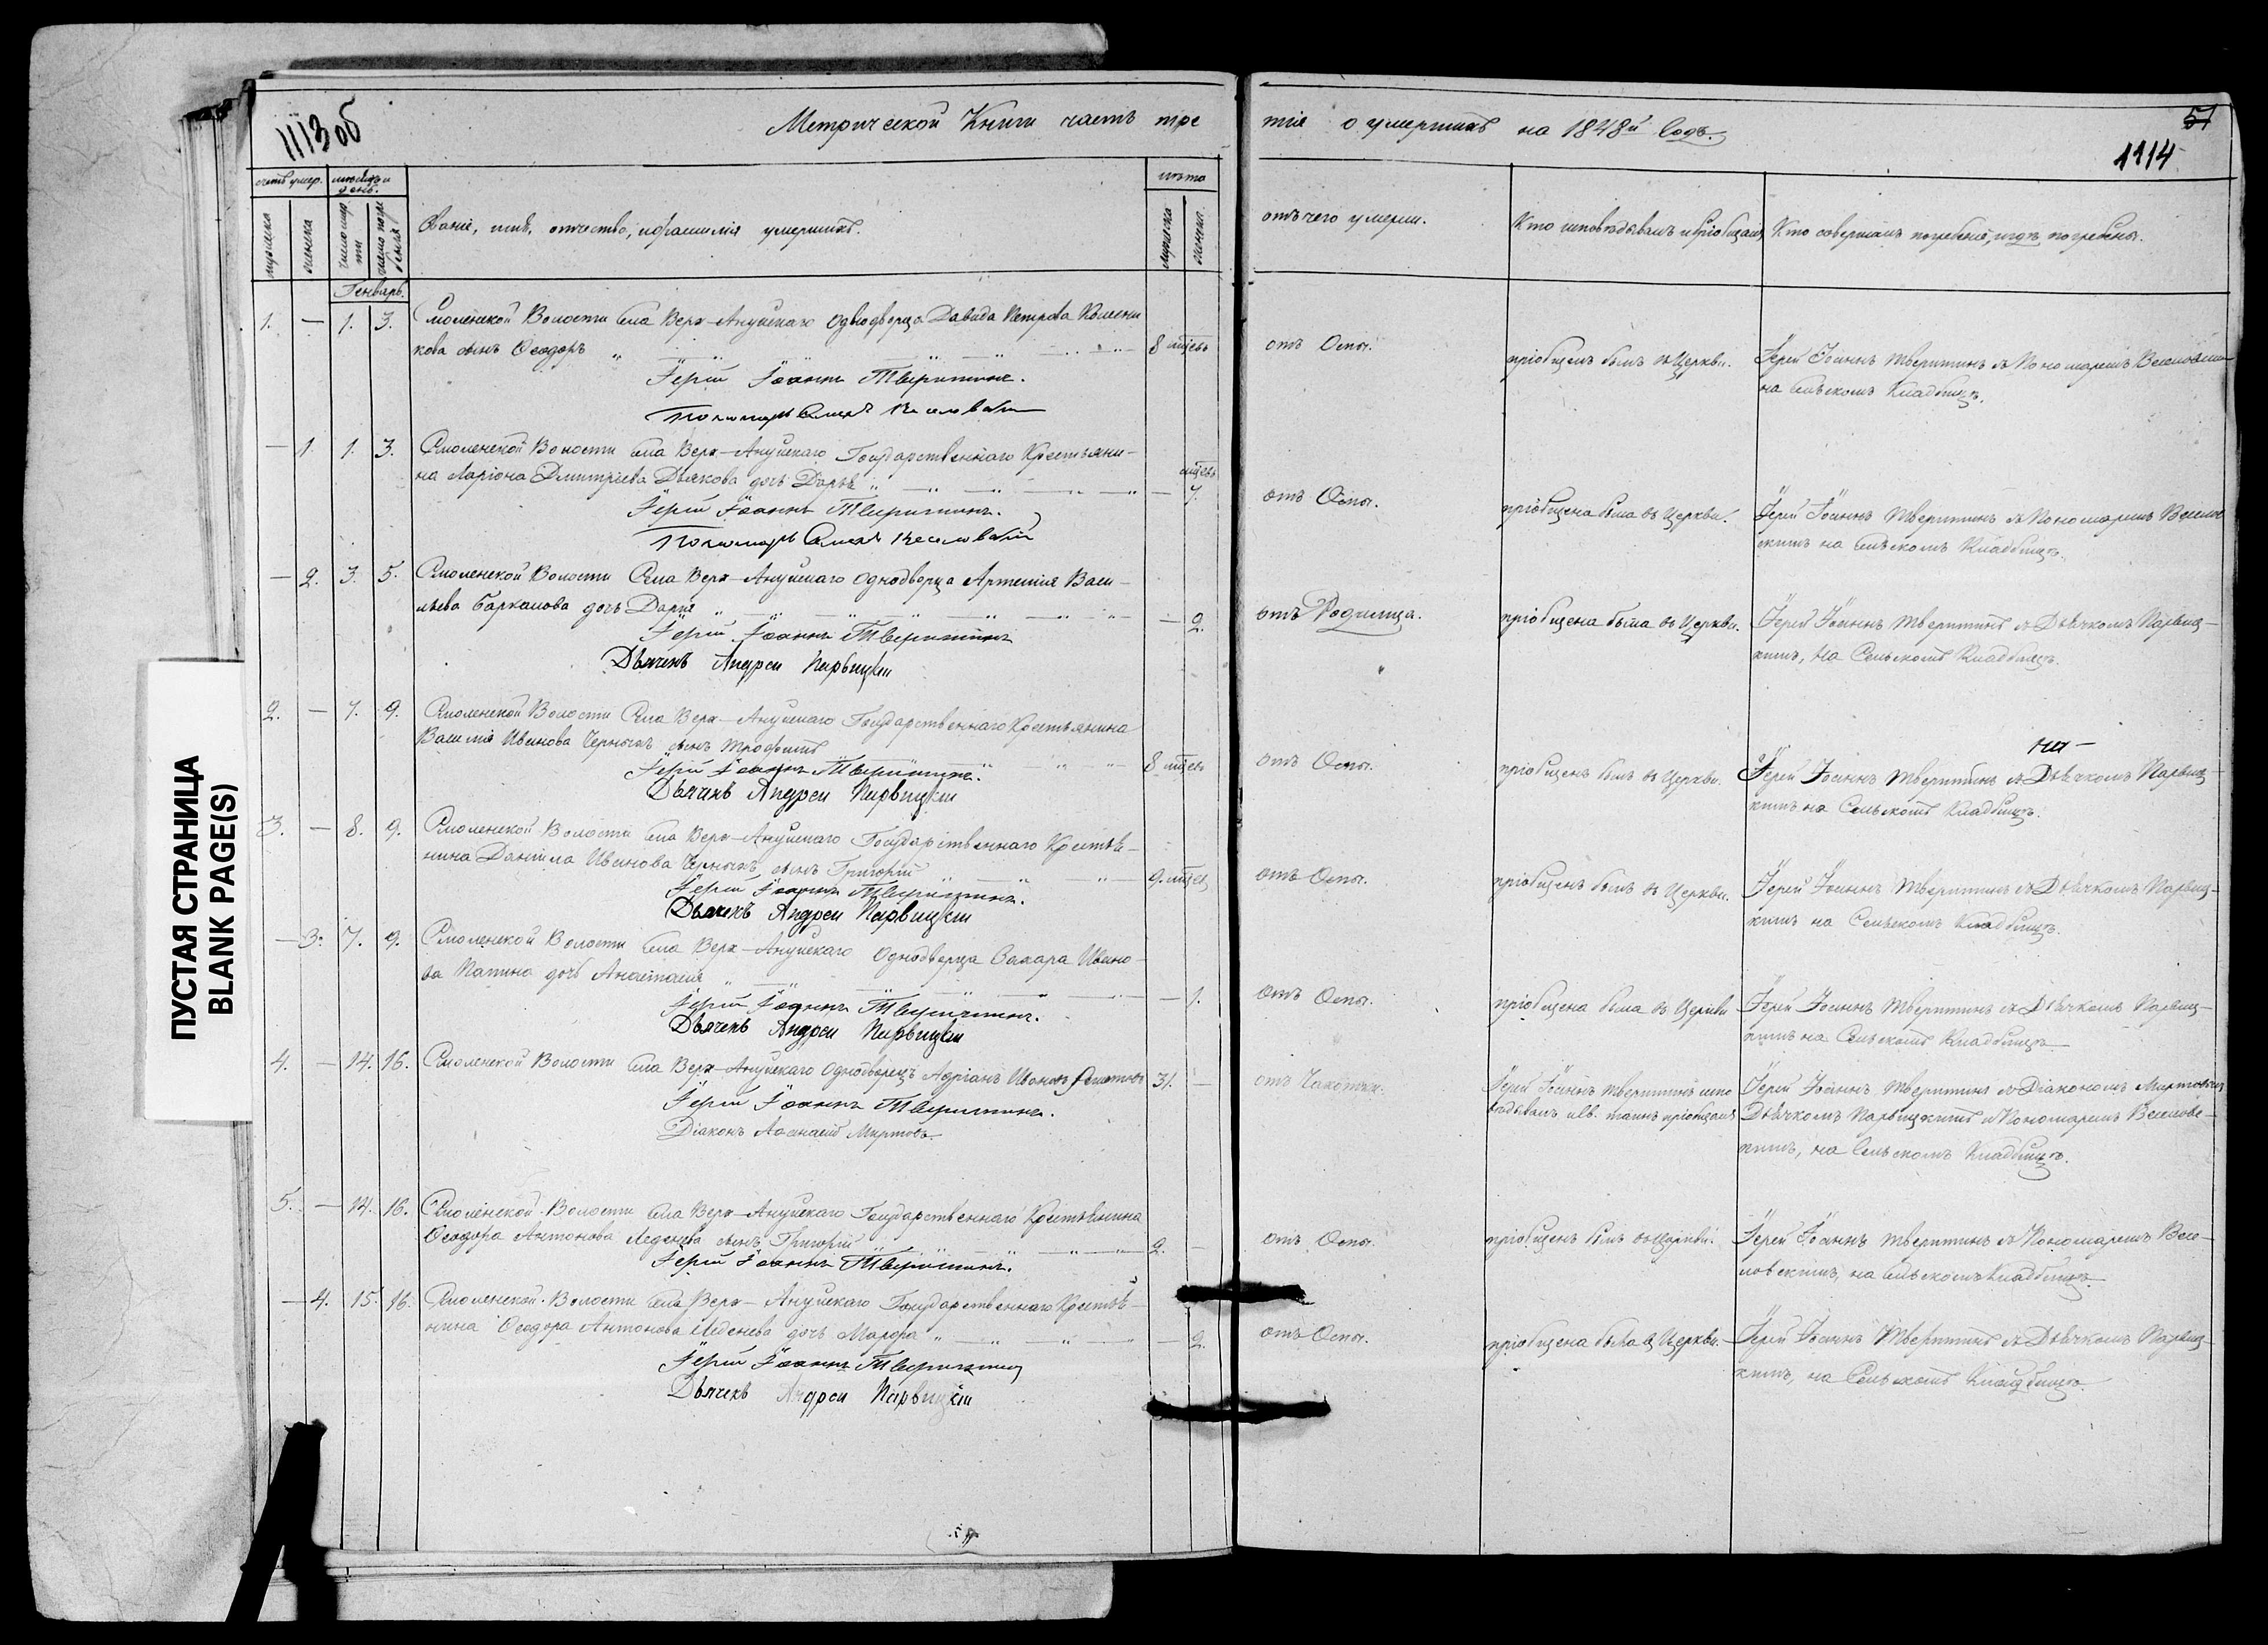 1113 об
Метрической Книги часть тре
тія о умершихъ на 1848й Годъ.
51
1114
счетъ умер. мѣсяцъ и день.
лѣта
мужеска
женска
число смерти
число погребенія
Званіе, имя, отчество, и фамилія умершихъ.
мужеска
женска
отъ чего умерли.
Кто исповѣдывалъ и пріобщалъ
Кто совершалъ погребеніе, и гдѣ погребены.
Генварь.
1. — 1. 3. Смоленской Волости Села Верх-Ануйскаго Однодворца Давида Петрова Колесни
кова сынъ Ѳеодоръ 8 мцевъ
отъ Оспы.
пріобщенъ былъ въ Церкви.
Іерей Іоаннъ Тверитинъ съ Пономаремъ Веселовским
на Сельскомъ Кладбищѣ.
Іерей Іоаннъ Тверитинъ.
Пономарь Веселовскій
— 1. 1. 3. Смоленской Волости Села Верх-Ануйскаго Государственнаго Крестьяни-
на Ларіона Дмитріева Дьякова дочь Дарья — 7. мцевъ
отъ Оспы.
пріобщена была въ Церкви.
Іерей Іоаннъ Тверитинъ съ Пономаремъ Веселов
скимъ на Сельскомъ Кладбищѣ.
Іерей Іоаннъ Тверитинъ.
Пономарь Веселовскій
— 2. 3. 5. Смоленской Волости Села Верх-Ануйскаго Однодворца Артемія Васи-
льева Барканова дочь Дарія — 2.
отъ Родимца.
пріобщена была въ Церкви.
Іерей Іоаннъ Тверитинъ съ Дьячкомъ Парвиц-
кимъ, на Сельскомъ Кладбищѣ.
Іерей Іоаннъ Тверитинъ
Дьячекъ Андрей Парвицкій
2. — 7. 9. Смоленской Волости Села Верх-Ануйскаго Государственнаго Крестьянина
Василія Иванова Черныхъ сынъ Трофимъ 8 мцевъ
отъ Оспы.
пріобщенъ былъ въ Церкви.
на-
Іерей Іоаннъ Тверитинъ съ Дьячкомъ Парвиц-
кимъ на Сельскомъ Кладбищѣ.
Іерей Іоаннъ Тверитинъ.
Дьячекъ Андрей Парвицкій
3. — 8. 9. Смоленской Волости Села Верх-Ануйскаго Государственнаго Крестья-
нина Даніила Иванова Черныхъ, сынъ Григорій 9. мцев
отъ Оспы.
пріобщенъ былъ въ Церкви.
Іерей Іоаннъ Тверитинъ съ Дьячкомъ Парвиц-
кимъ на Сельскомъ Кладбищѣ.
Іерей Іоаннъ Тверитинъ.
Дьячекъ Андрей Парвицкій
— 3. 7. 9. Смоленской Волости Села Верх-Ануйскаго Однодворца Захара Ивано-
ва Папина дочь Анастасія — 1.
отъ Оспы.
пріобщена была въ Церкви
Іерей Іоаннъ Тверитинъ съ Дьячкомъ Парвиц-
кимъ на Сельскомъ Кладбищѣ
Іерей Іоаннъ Тверитинъ.
Дьячекъ Андрей Парвицкій
4. — 14. 16. Смоленской Волости Села Верх-Ануйскаго Однодворецъ Адріанъ Ивановъ 31. —
отъ Чахотки.
Іерей Іоаннъ Тверитинъ испо
вѣдывалъ и св. таинъ пріобщалъ
Іерей Іоаннъ Тверитинъ съ Діакономъ Миртовымъ
Дьячкомъ Парвицкимъ и Пономаремъ Веселовс-
кимъ, на Сельскомъ Кладбищѣ.
Іерей Іоаннъ Тверитинъ.
Діаконъ Аѳанасій Миртовъ
5. — 14. 16. Смоленской Волости Села Верх-Ануйскаго Государственнаго Крестьянина
Ѳеодора Антонова Леденева сынъ Григорій 2. —
отъ Оспы.
пріобщенъ былъ въ Церкви.
Іерей Іоаннъ Тверитинъ съ Пономаремъ Весе-
ловскимъ, на Сельскомъ Кладбищѣ
Іерей Іоаннъ Тверитинъ.
— 4. 15. 16. Смоленской Волости Села Верх-Ануйскаго Государственнаго Крестья-
нина Ѳеодора Антонова Леденева дочь Марѳа — 2.
отъ Оспы.
пріобщена была въ Церкви.
Іерей Іоаннъ Тверитинъ съ Дьячкомъ Парвиц-
кимъ, на Сельскомъ Кладбищѣ.
Іерей Іоаннъ Тверитинъ
Дьячекъ Андрей Парвицкій
ПУСТАЯ СТРАНИЦА
BLANK PAGE(S)